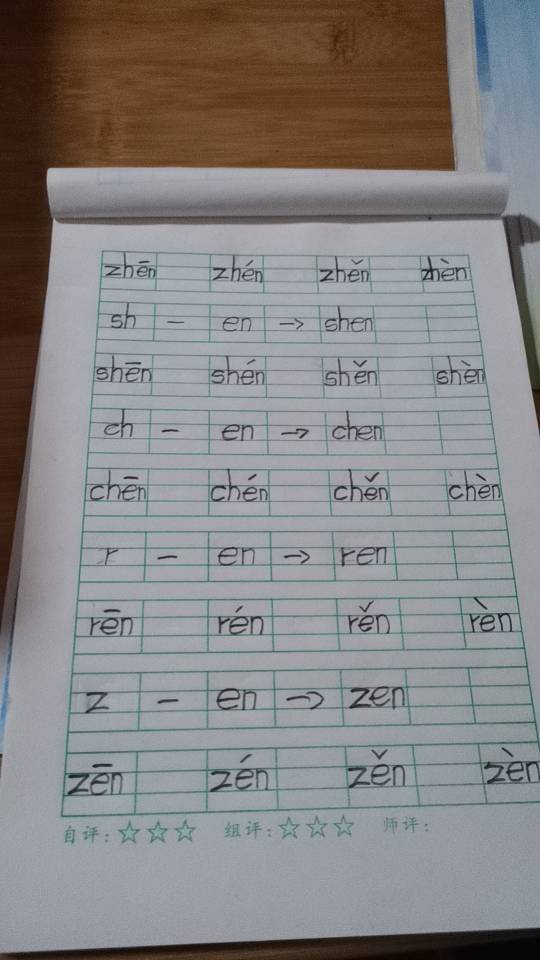 zhēn zhén zhěn zhèn
sh – en → shen
shēn shén shěn shèn
ch – en → chen
chēn chén chěn chèn
r – en → ren
rēn rén rěn rèn
z – en → zen
zēn zén zěn zèn
自评：☆☆☆ 组评：☆☆☆ 师评：